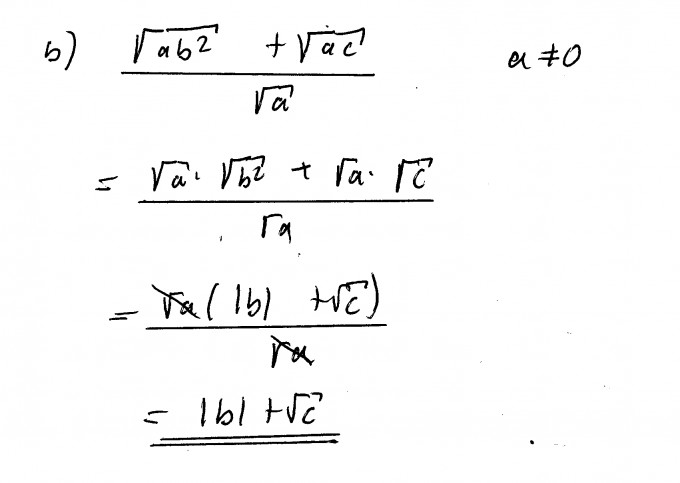 b) √ab² + √ac / √a a ≠ 0
= √a · √b² + √a · √c / √a
= √a (|b| + √c) / √a
= |b| + √c